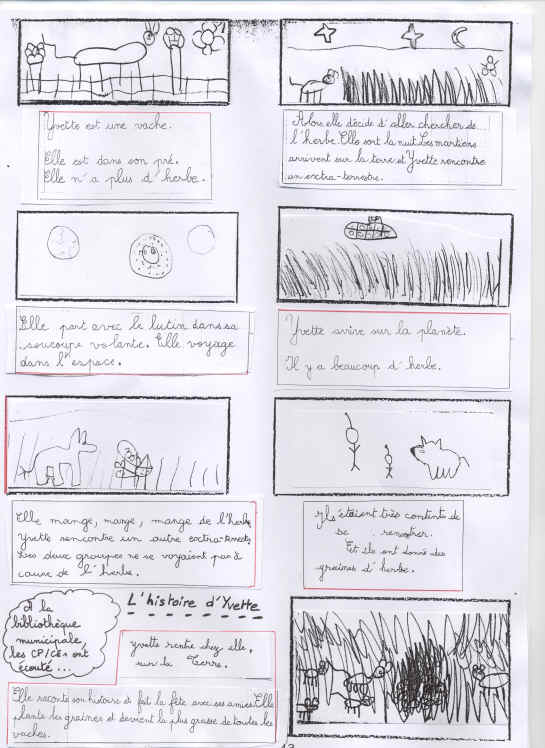 Yvette est une vache.
Elle est dans son pré.
Elle n'a plus d'herbe.
Alors elle décide d'aller chercher de
l'herbe. Elle sont la nuit. Les martiens
arrivent sur la terre et Yvette rencontre
un extra-terrestre.
Elle part avec le lutin dans sa
soucoupe volante. Elle voyage
dans l'espace.
Yvette arrive sur la planète.
Il y a beaucoup d'herbe.
Elle mange, mange, mange de l'herbe
Yvette rencontre un autre extra-terrestre
Les deux groupes ne se voyaient pas à
cause de l'herbe.
Ils étaient très contents de
se rencontrer.
Et ils ont donné des
graines d'herbe.
A la
bibliothèque
municipale,
les CP/CE1 ont
écouté ...
L'histoire d'Yvette
Yvette rentre chez elle,
sur la Terre.
Elle raconte son histoire et fait la fête avec ses amies. Elle
plante les graines et devient la plus grasse de toutes les
vaches.